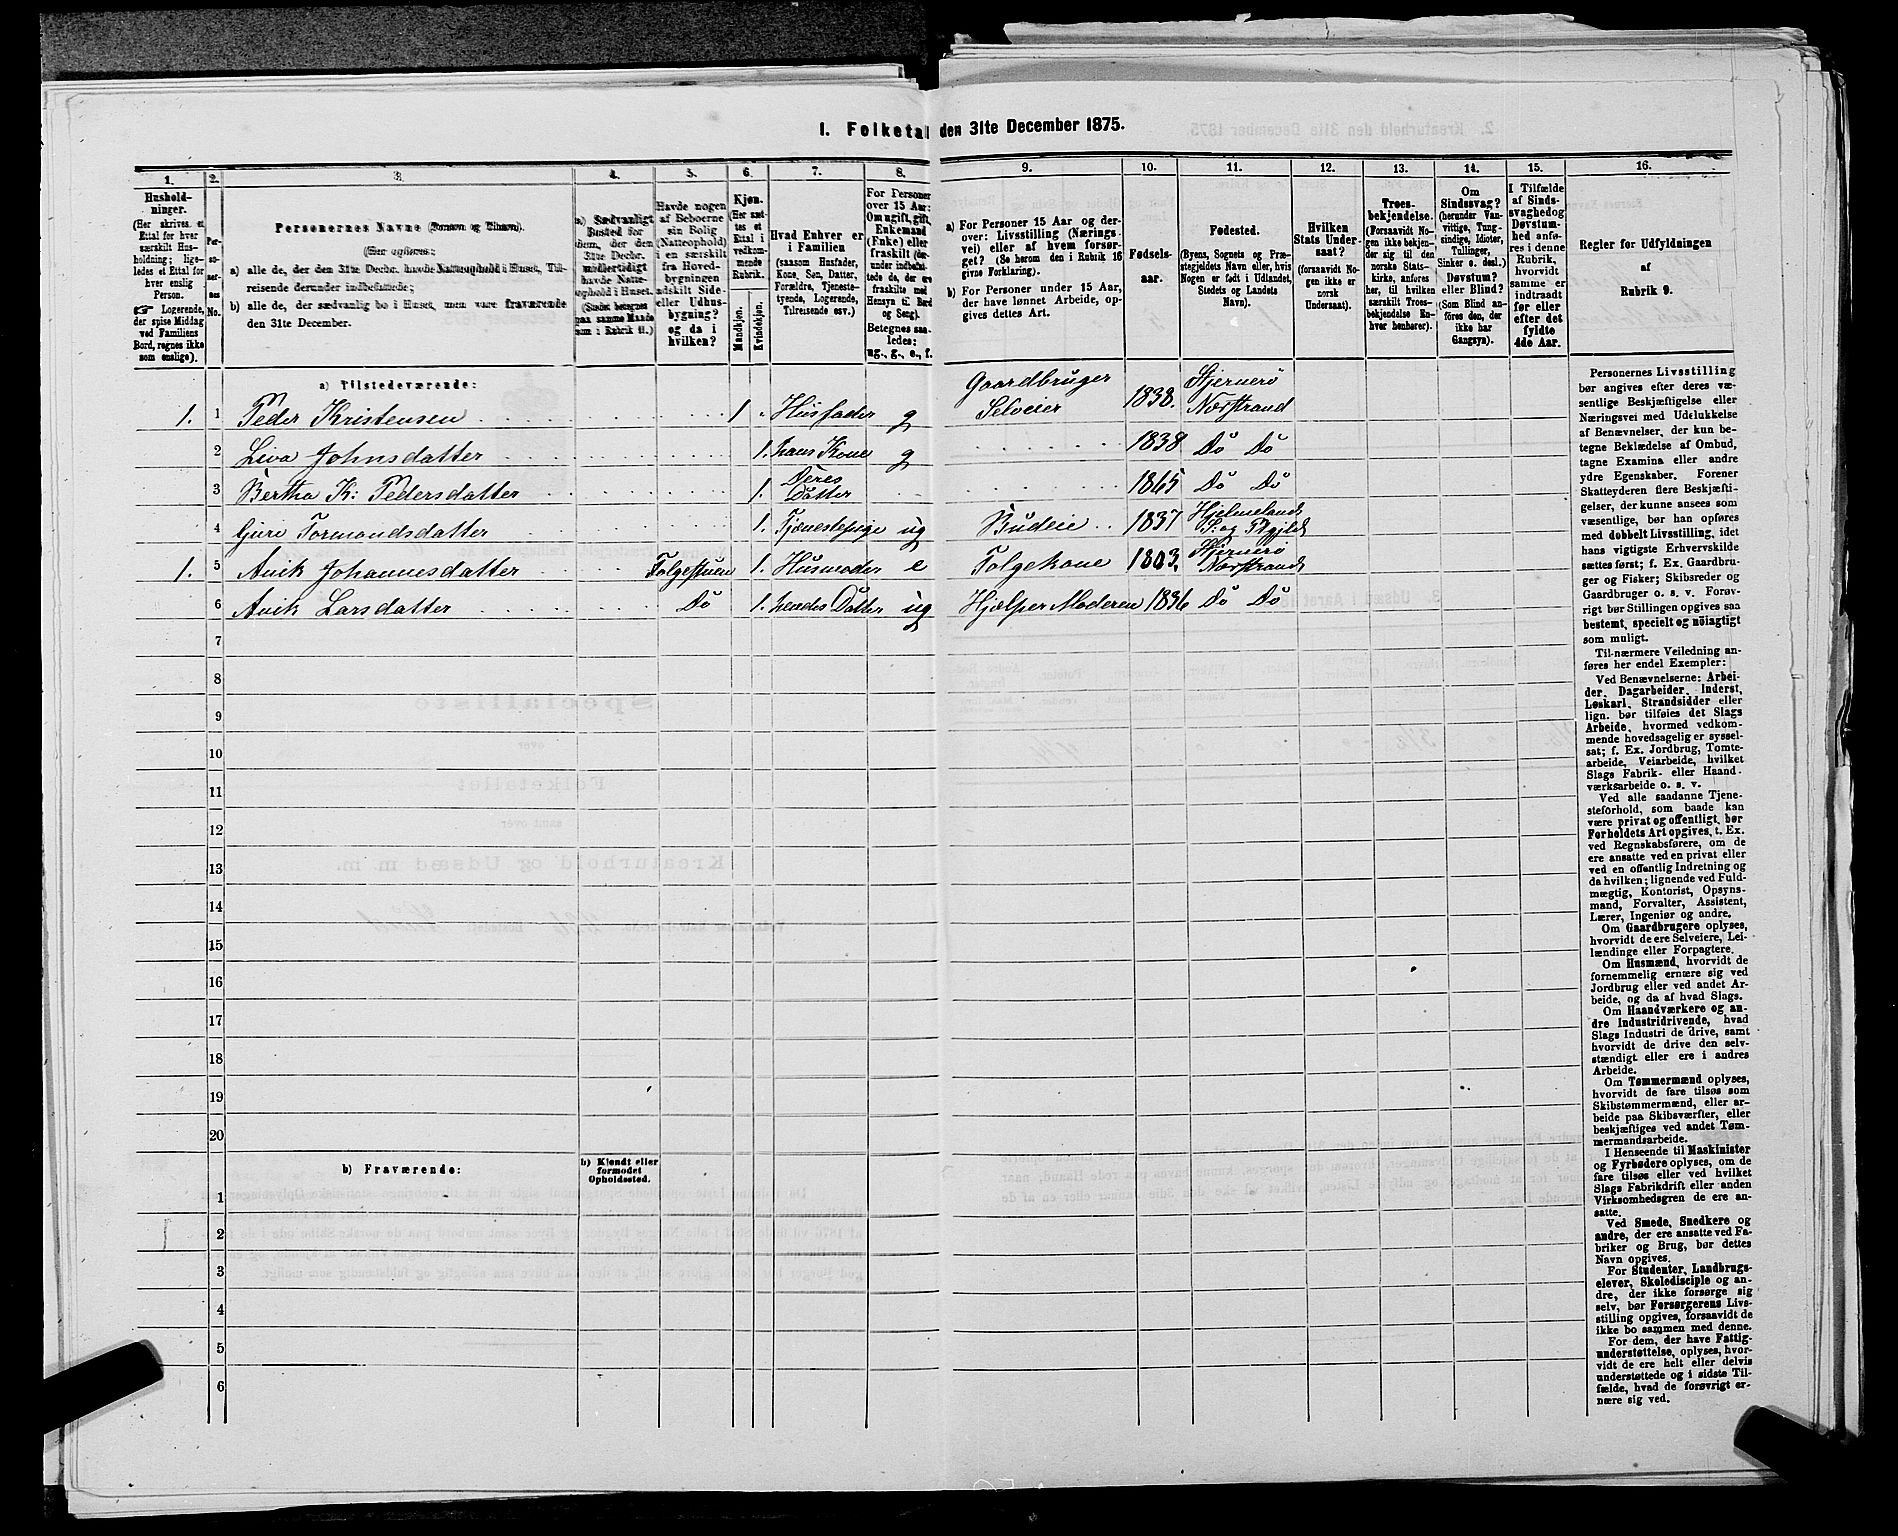 I. Folketal den 31te December 1875.
1. 2. 3. 4. 5. 6. 7. 8. 9. 10. 11. 12. 13. 14. 15. 16.
Hushold-
ninger.
(Her skrives et
Ettal for hver
særskilt Hus-
holdning; lige-
ledes et Ettal for
hver enslig
Person.
Logerende,
der spise Middag
ved Familiens
Bord, regnes ikke
som enslige).
Per-
soner-
nes
No.
Personernes Navne (Fornavn og Tilnavn).
(Her opføres:
a) alle de, der den 31te Decbr. havde Natteophold i Huset, Til-
reisende derunder indbefattede;
b) alle de, der sædvanlig bo i Huset, men vare fraværende
den 31te December.
a) Sædvanligt
Bosted for
dem, der den
31te Decbr.
midlertidigt
havde Natte-
ophold i Huset.
(Stedet betegnes
paa samme Maade
som i Rubrik 11.)
Havde nogen
af Beboerne
sin Bolig
(Natteophold)
i en særskilt
fra Hoved-
bygningen
adskilt Side-
eller Udhus-
bygning?
og da i
hvilken?
Kjøn.
(Her sæt-
tes et
Ettal i
vedkom-
mende
Rubrik.
Mandkjøn.
Kvindekjøn.
Hvad Enhver er
i Familien
(saasom Husfader,
Kone, Søn, Datter,
Forældre, Tjeneste-
tyende, Logerende,
Tilreisende osv.)
For Personer
over 15 Aar:
Om ugift, gift,
Enkemand
(Enke) eller
fraskilt (der-
under indbefat-
tede de, der ere
fraskilte med
Hensyn til Bord
og Seng).
Betegnes saa-
ledes:
ug., g., e., f.
a) For Personer 15 Aar og der-
over: Livsstilling (Nærings-
vei) eller af hvem forsør-
get? (Se herom den i Rubrik 16
givne Forklaring).
b) For Personer under 15 Aar,
der have lønnet Arbeide, op-
gives dettes Art.
Fødsels-
aar.
Fødested.
(Byens, Sognets og Præ-
stegjeldets Navn eller, hvis
Nogen er født i Udlandet,
Stedets og Landets
Navn).
Hvilken
Stats Under-
saat?
(forsaavidt No-
gen ikke er
norsk
Undersaat).
Troes-
bekjendelse.
(Forsaavidt No-
gen ikke bekjen-
der sig til den
norske Stats-
kirke, anføres
her, til hvilken
særskilt Troes-
bekjendelse En-
hver henhører).
Om
Sindssvag?
(herunder Van-
vittige, Tung-
sindige, Idioter,
Tullinger,
Sinker o. desl.)
Døvstum?
eller Blind?
(Som Blind an-
føres den, der
ikke har
Gangsyn).
I Tilfælde
af Sinds-
svaghed og
Døvstum-
hed anfø-
res i denne
Rubrik,
hvorvidt
samme er
indtraadt
før eller
efter det
fyldte
4de Aar.
Regler for Udfyldningen
af
Rubrik 9.
a) Tilstedeværende:
1. 1 Peder Kristensen 1 Husfader g Gaardbruger Selveier 1838. Hjernerö Nærstrand
2 Liva Johnsdatter 1. hans Kone g 1838 Do Do
3 Bertha K: Pedersdatter 1. Deres Datter 1865 Do Do
4 Guri Tormondsdatter 1. Tjenestepige ug Budeie 1837 Hjelmelands S: og Prgjeld
1. 5 Anik Johannesdatter Folgestuen 1. Husmoder e Folgekone 1803. Hjernerö Nærstrand
6 Anik Larsdatter Do 1. hendes Datter ug Hjælper Moderen 1836 Do Do
7
8
9
10
11
12
13
14
15
16
17
18
19
20
b) Fraværende:
b) Kjendt eller
formodet
Opholdssted.
1
2
3
4
5
6
Personernes Livsstilling
bør angives efter deres væ-
sentlige Beskjæftigelse eller
Næringsvei med Udelukkelse
af Benævnelser, der kun be-
tegne Beklædelse af Ombud,
tagne Examina eller andre
ydre Egenskaber. Forener
Skatteyderen flere Beskjæfti-
gelser, der kunne ansees som
væsentlige, bør han opføres
med dobbelt Livsstilling, idet
hans vigtigste Erhvervskilde
sættes først; f. Ex. Gaardbru-
ger og Fisker; Skibsreder og
Gaardbruger o. s. v. Forøv-
rigt bør Stillingen opgives saa
bestemt, specielt og nöiagtigt
som muligt.
Til nærmere Veiledning an-
føres her endel Exempler:
Ved Benævnelserne: Arbei-
der, Dagarbeider, Inderst,
Løskarl, Strandsidder eller
lign. bør tilføies det Slags
Arbeide, hvormed vedkom-
mende hovedsagelig er syssel-
sat; f. Ex. Jordbrug, Tomte-
arbeide, Veiarbeide, hvilket
Slags Fabrik- eller Haand-
værksarbeide o. s. v.
Ved alle saadanne Tjene-
steforhold, som baade kan
være privat og offentligt, bør
Forholdets Art opgives, t. Ex.
ved Regnskabsførere, om de
ere ansatte ved en privat eller
ved en offentlig Indretning og
da hvilken; lignende ved Fuld-
mægtig, Kontorist, Opsyns-
mand, Forvalter, Assistent,
Lærer, Ingeniør og andre.
Om Gaardbrugere oplyses,
hvorvidt de ere Selveiere, Lei-
lændinge eller Forpagtere.
Om Husmænd, hvorvidt de
fornemmelig ernære sig ved
Jordbrug eller ved andet Ar-
beide, og da af hvad Slags.
Om Haandværkere og an-
dre Industridrivende, hvad
Slags Industri de drive, samt
hvorvidt de drive den selv-
stændigt eller ere i andres
Arbeide.
Om Tømmermænd oplyses,
hvorvidt de fare tilsøs som
Skibstømmermænd, eller ar-
beide paa Skibsværfter, eller
beskjæftiges ved andet Tøm-
mermandsarbeide.
I Henseende til Maskinister
og Fyrbødere oplyses, om de
fare tilsøs eller ved hvilket
Slags Fabrikdrift eller anden
Virksomhedsgren de ere an-
satte.
Ved Smede, Snedkere og
andre, der ere ansatte ved Fa-
briker og Brug, bør dettes
Navn opgives.
For Studenter, Landbrugs-
elever, Skoledisciple og an-
dre, der ikke forsørge sig
selv, bør Forsørgerens Livs-
stilling opgives, forsaavidt de
ikke bo sammen med denne.
For dem, der have Fattig-
understøttelse, oplyses, hvor-
vidt de ere helt eller delvis
understøttede og i sidste Til-
fælde, hvad de forøvrigt er-
nære sig ved.